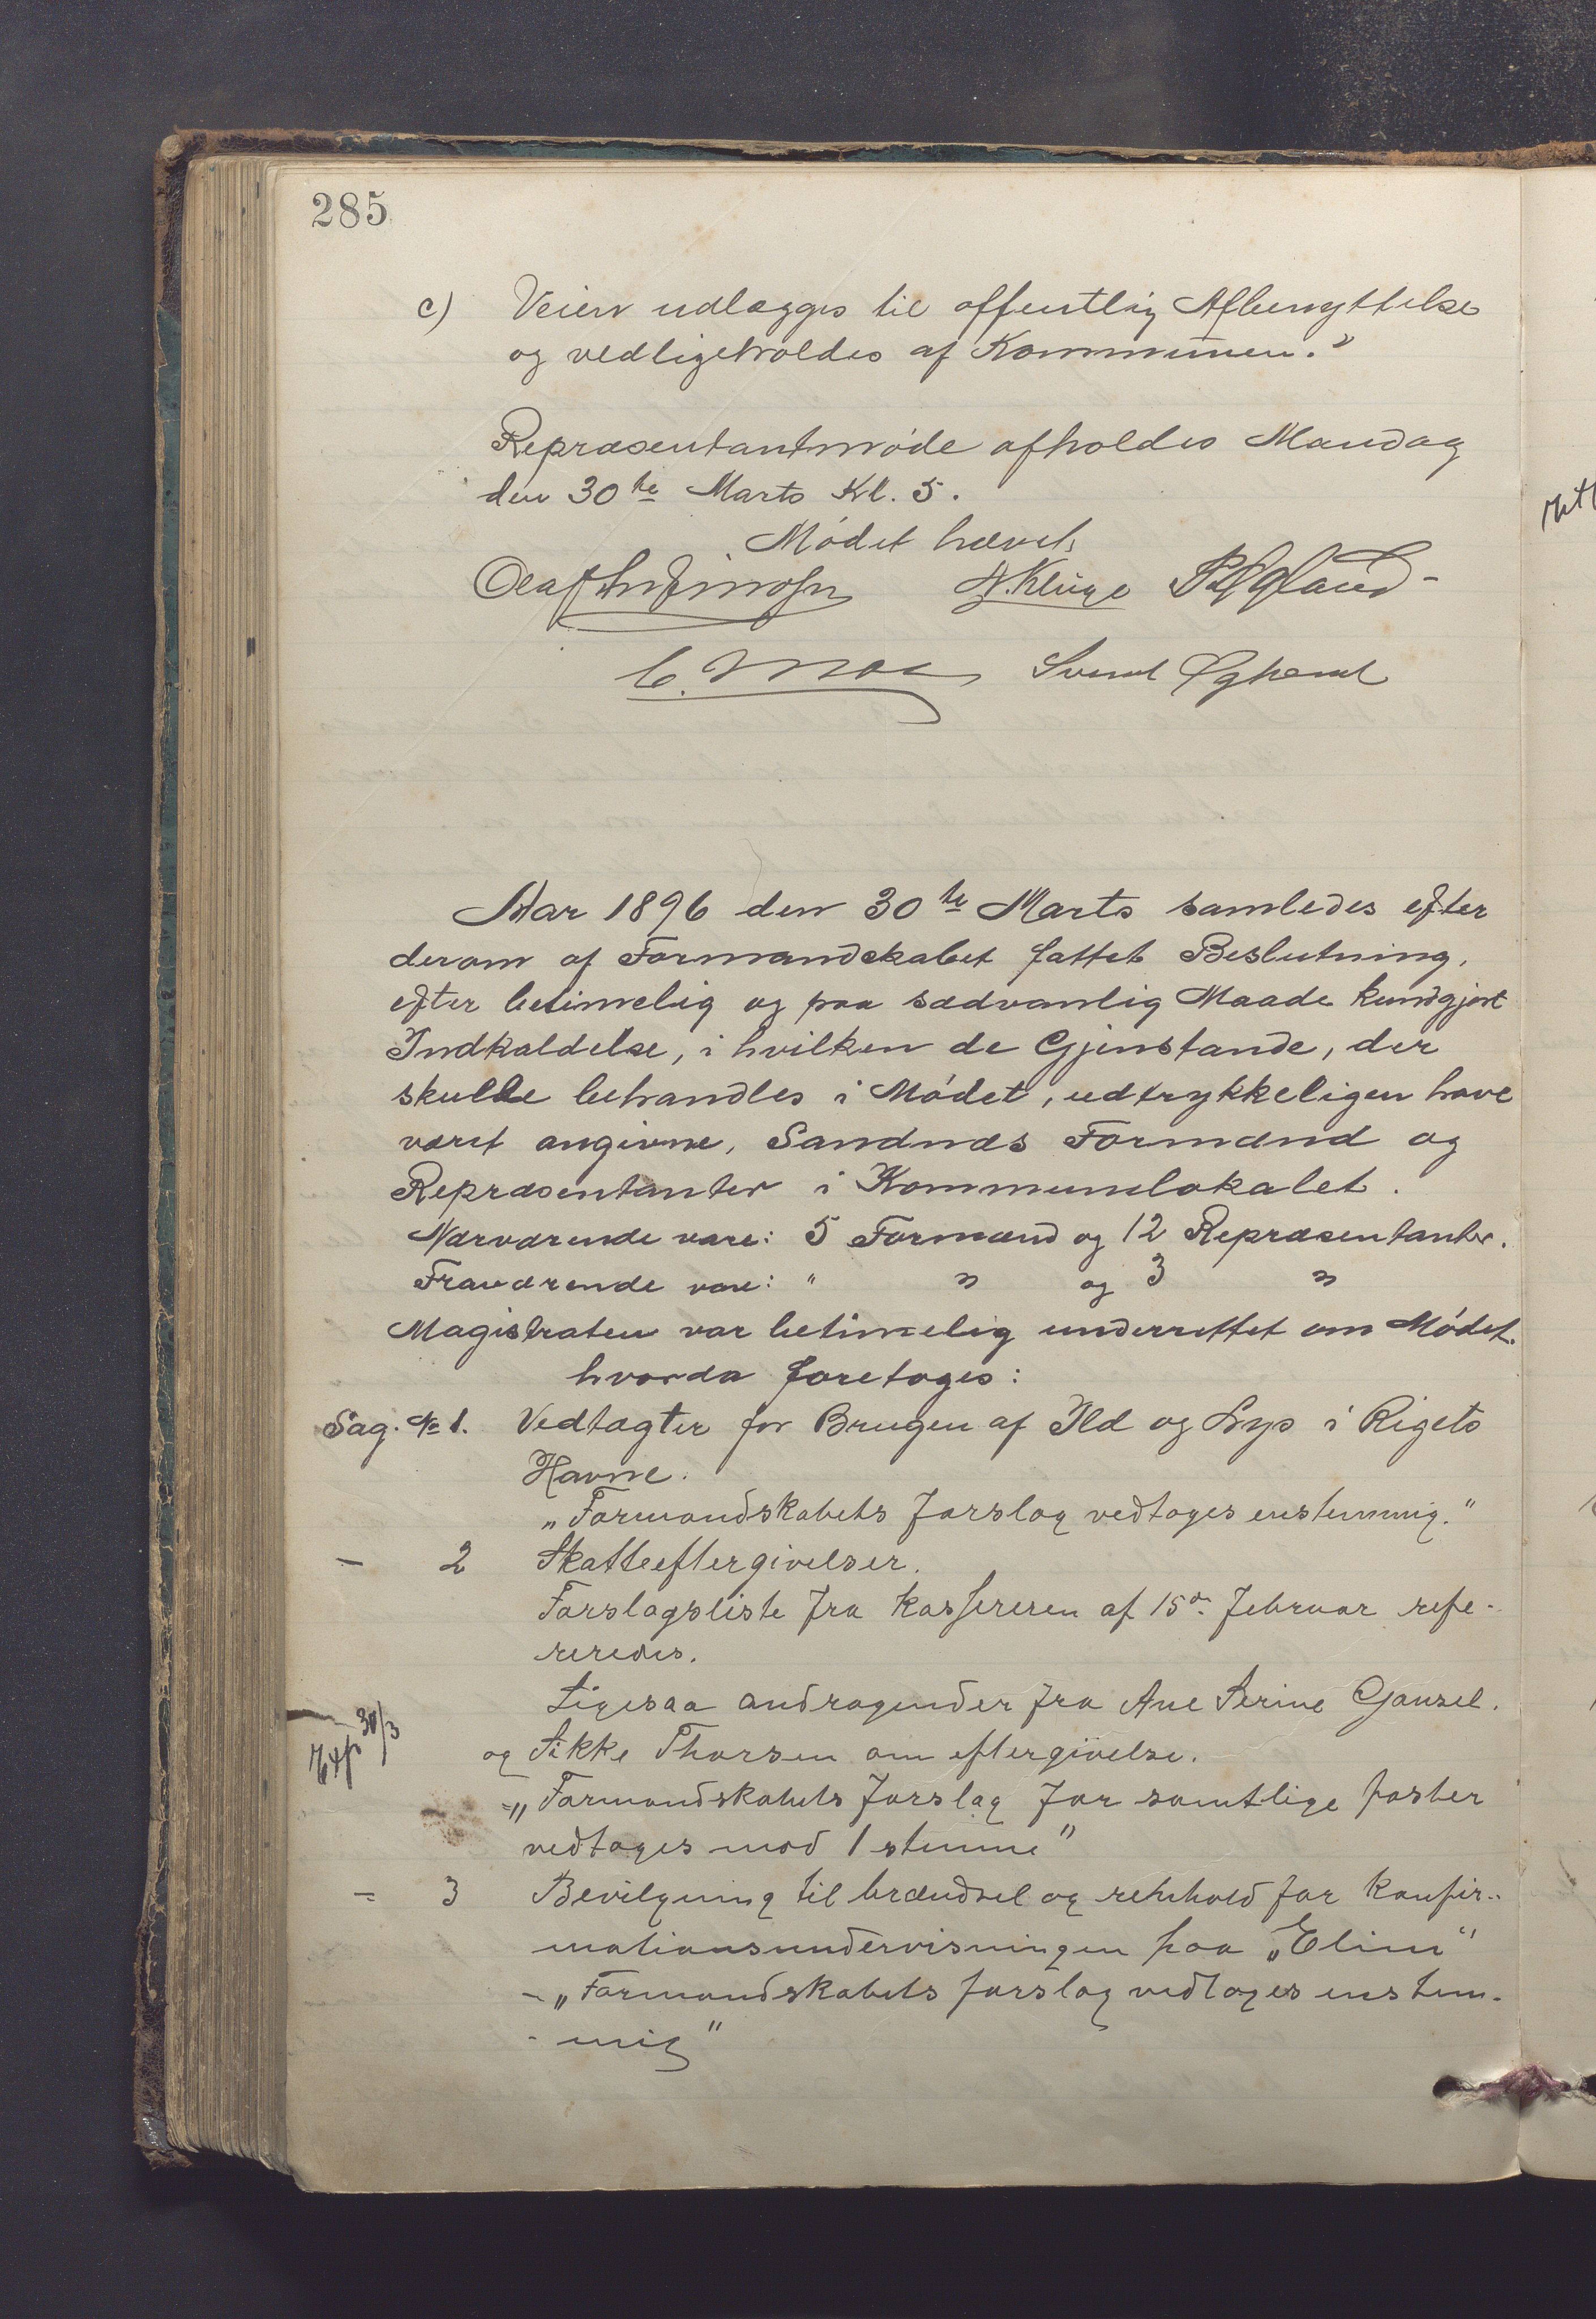 285
c) Veien udlægges til offentlig Afbenyttelse
og vedligeholdes af Kommunen."
Repræsentantmøde afholdes Mandag
den 30te Marts Kl. 5.
Mødet hævet.
A. Kluge
Svend
Aar 1896 den 30te Marts samledes efter
derom af Formandskabet fattet Beslutning,
efter betimelig og paa sædvanlig Maade kundgjort
Indkaldelse, i hvilken de Gjenstande, der
skulle behandles i Mødet, udtrykkeligen have
været angivne, Sandnæs Formænd og
Repræsentanter i Kommunelokalet.
Nærværende vare: 5 Formænd og 12 Repræsentanter.
Fraværende vare: " " og 3 "
Magistraten var betimelig underrettet om Mødet.
hvorda foretoges:
Sag. № 1. Vedtægter for Brugen af Ild og Lys i Rigets
Havne.
„Formandskabets forslag vedtoges enstemmig."
— 2 Skatteeftergivelser.
Forslagsliste fra kassereren af 15de februar refe-
reredes.
Ligesaa andragender fra Ane Serine Gausel.
og Sikke Thorsen om eftergivelse.
Exp 30/3
-„Formandskabets forslag for samtlige poster
vedtoges mod 1 stemme"
— 3 Bevilgning til brændsel og renhold for konfir-
mationsundervisningen paa „Elim"
-„Formandskabets forslag vedtoges enstem-
- mig"